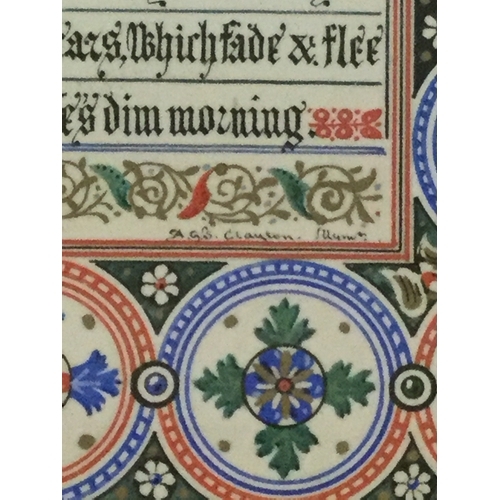 ars, Which fade & flee
e's dim morning.
A.G.B. Clayton.